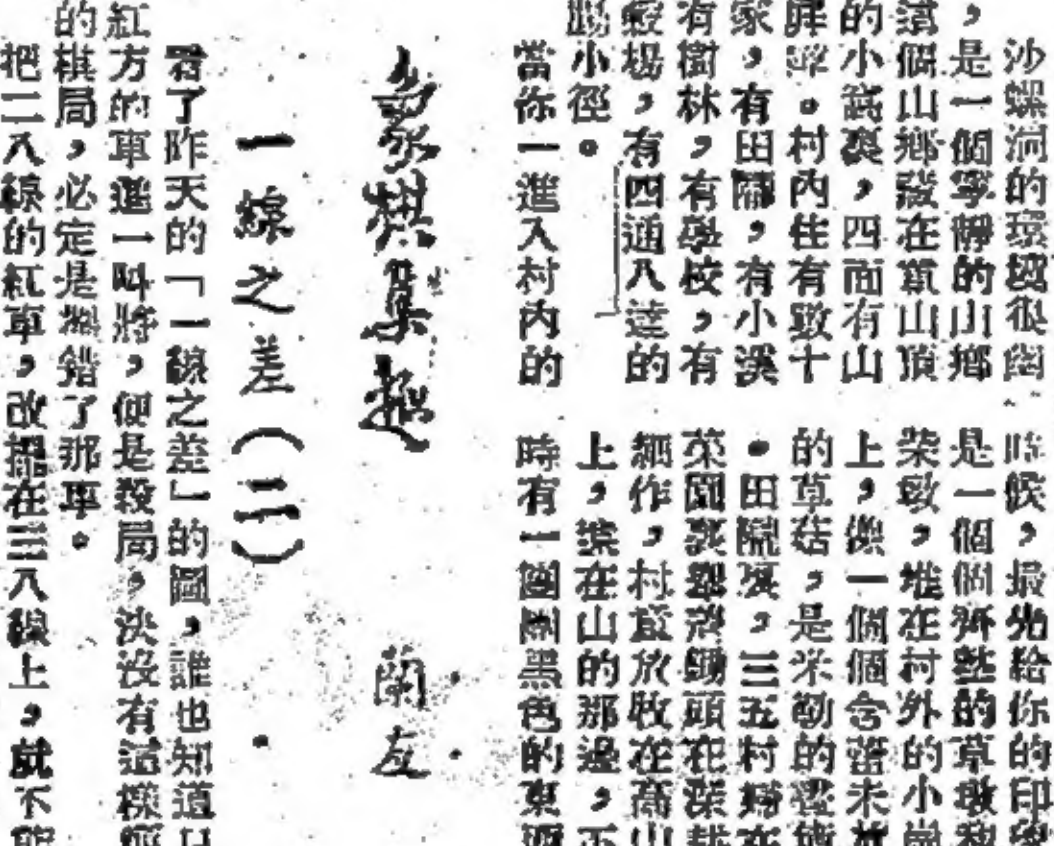 沙螺洞的環境很幽
，是一個寧靜的山鄉
這個山鄉在山頂
的小裏，四面有山
屏障。村內住有數十
家，有田隴，有小溪
有樹林，有學校，有
穀場，有四通八達的
腸小徑。
當你一進入村內的
時候，最先給你的印象
是一個個齊整的草墩和
柴墩，堆在村外的小崗
上，像一個個含蕾未放
的草菇，是米勒的
。田隴裏，三五村婦在
菜園裏鋤頭在深
耕作，村童放牧在高山
上，樂在山的那邊，不
時有一團團黑色的東西
象棋集趣
閑友
一線之差（二）
看了昨天的「一線之差」的圖，誰也知道只
紅方的車進一叫將，便是殺局，決沒有這樣
的棋局，必定是擺錯了那車。
把二八線的紅車，改擺在三八線上，就不能